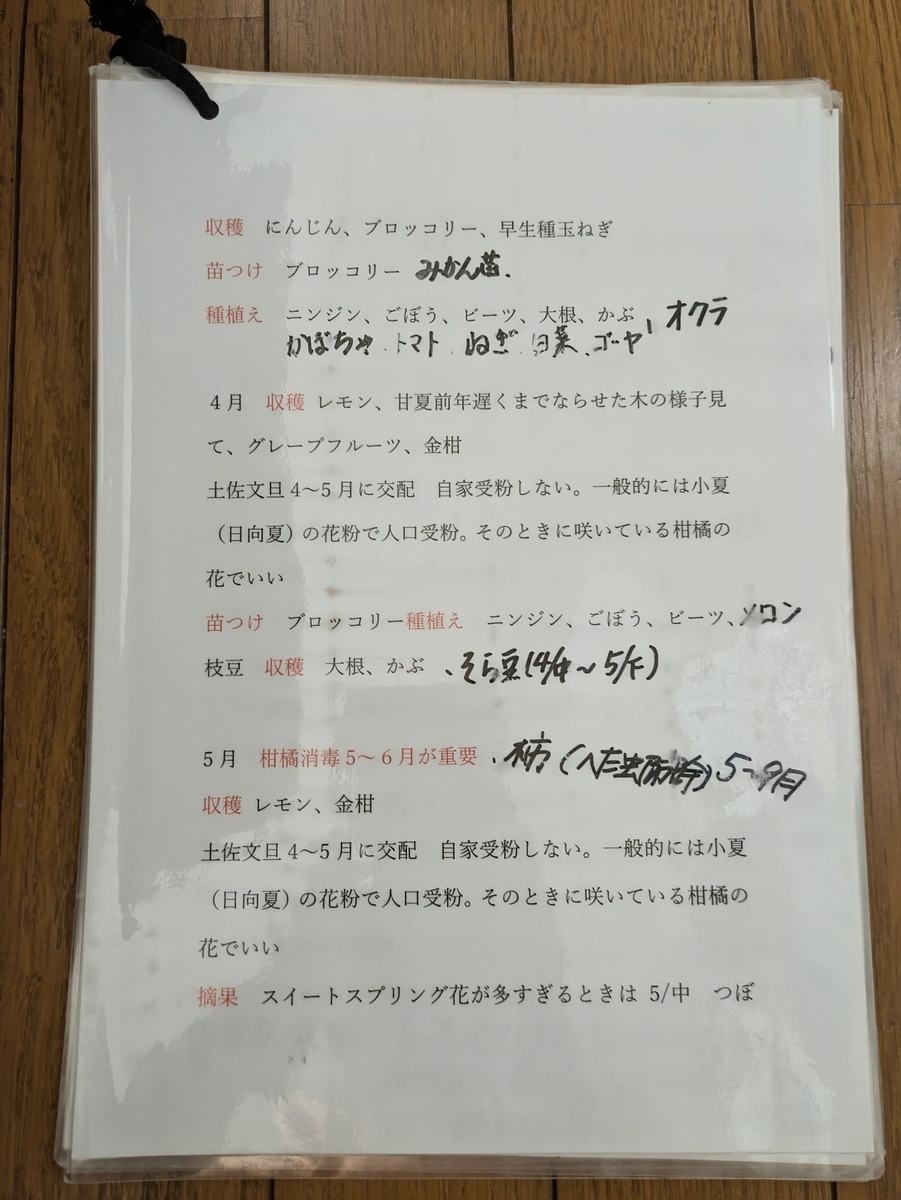 収穫　にんじん、ブロッコリー、早生種玉ねぎ
苗つけ　ブロッコリー みかん苗.
種植え　ニンジン、ごぼう、ビーツ、大根、かぶ、オクラ
かぼちゃ.トマト.ねぎ.白菜.ゴーヤ
4月　収穫 レモン、甘夏前年遅くまでならせた木の様子見
て、グレープフルーツ、金柑
土佐文旦4～5月に交配　自家受粉しない。一般的には小夏
（日向夏）の花粉で人口受粉。そのときに咲いている柑橘の
花でいい
苗つけ　ブロッコリー種植え　ニンジン、ごぼう、ビーツ、メロン
枝豆　収穫　大根、かぶ 、そら豆(4/中～5/下)
5月　柑橘消毒5～6月が重要 、柿(へた虫 5～9月
収穫 レモン、金柑
土佐文旦4～5月に交配　自家受粉しない。一般的には小夏
（日向夏）の花粉で人口受粉。そのときに咲いている柑橘の
花でいい
摘果　スイートスプリング花が多すぎるときは 5/中　つぼ